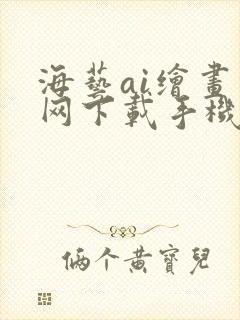 海藝ai繪畫
网下載手機
俩个黄寶兒